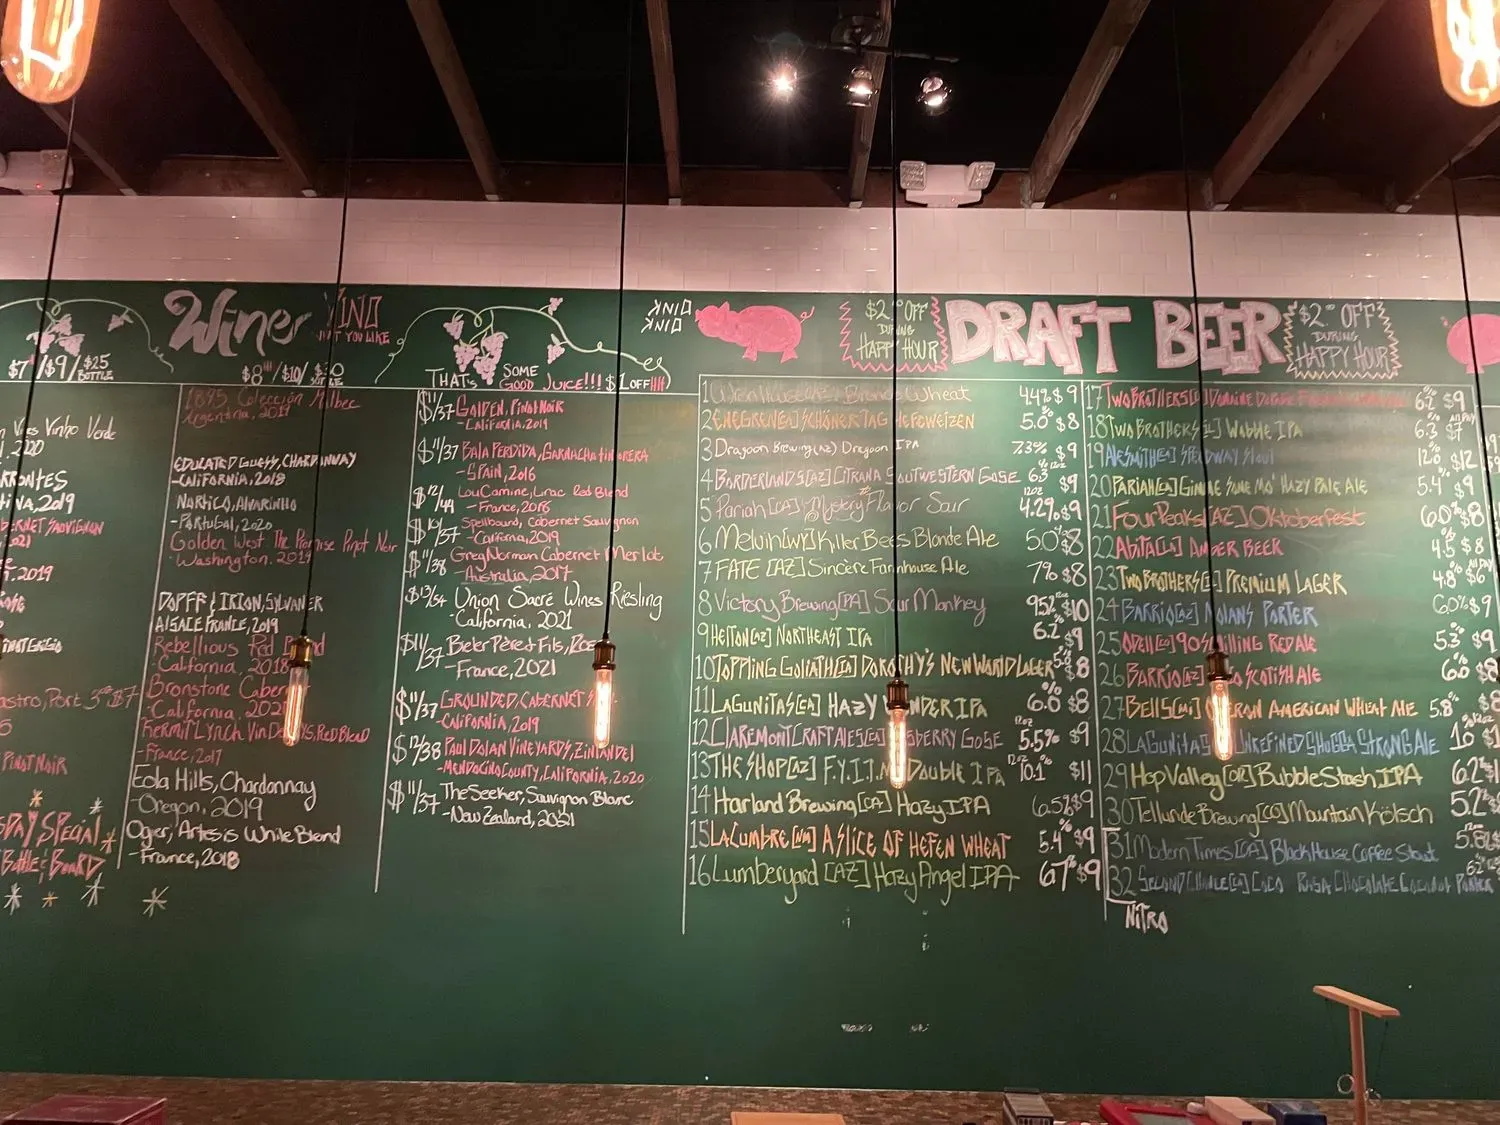 Wines VINO
THAT YOU LIKE
$7/$9/$25
BOTTLE
$8/$10/$30
BOTTLE
THAT'S SOME
GOOD JUICE!!! $1 OFF HH
Vinho Verde
2020
2019
CABERNET SAUVIGNON
2021
2019
PINOT GRIGIO
Port 3oz $7
PINOT NOIR
SPECIAL
Bottle & BOARD
1895 Colección Malbec
Argentina, 2019
EDUCATED GUESS, CHARDONNAY
-CALIFORNIA, 2018
NORTICO, ALVARINHO
-PORTUGAL, 2020
Golden West The Promise Pinot Noir
-Washington, 2019
DOPFF & IRION, SYLVANER
ALSACE FRANCE, 2019
Rebellious Red Blend
-California, 2018
Bronstone Cabernet
-California, 2020
Kermit Lynch Vin Du Pays, Red Blend
-France, 2017
Eola Hills, Chardonnay
-Oregon, 2019
Oger, Artesis White Blend
-France, 2018
$11/37 GOLDEN, PINOT NOIR
-CALIFORNIA, 2019
$11/37 BALA PERDIDA, GARNACHA TINTORERA
-SPAIN, 2016
$12/44 Lou Camine, Lirac Red Blend
-France, 2016
$10/37 Spellbound, Cabernet Sauvignon
-California, 2019
$11/38 Greg Norman Cabernet Merlot
-Australia, 2017
$13/54 Union Sacré Wines Riesling
-California, 2021
$11/37 Bieler Père et Fils,
-France, 2021
$11/37 GROUNDED, CABERNET
-CALIFORNIA, 2019
$12/38 PAUL DOLAN VINEYARDS, ZINFANDEL
-MENDOCINO COUNTY, CALIFORNIA, 2020
$11/37 The Seeker, Sauvignon Blanc
-New Zealand, 2021
OINK
OINK
$2.00 OFF
DURING
HAPPY HOUR
DRAFT BEER
$2.00 OFF
DURING
HAPPY HOUR
1 Wren House [AZ] Bronco Wheat 4.4% $9
2 EVERGREN[] SCHÖNER TAG HEFEWEIZEN 5.0% $8
3 Dragoon Brewing [AZ] Dragoon IPA 7.3% $9
4 BORDERLANDS[AZ] CITRANA SOUTWESTERN GOSE 6.3% 12oz $9
5 Pariah [CA] Mystery Flavor Sour 12oz 4.2% $9
6 Melvin [WY] Killer Bees Blonde Ale 5.0% $8
7 FATE [AZ] Sincère Farmhouse Ale 7% $8
8 Victory Brewing [PA] Sour Monkey 9.5% $10
9 HELTON[AZ] NORTHEAST IPA 6.2% $9
10 TOPPLING GOLIATH[IA] DOROTHY'S NEW WORLD LAGER $8
11 LAGUNITAS[CA] HAZY WONDER IPA 6.0% $8
12 CLAREMONT CRAFT ALES[CA] GOSE 12oz 5.5% $9
13 THE SHOP[AZ] F.Y.I.T.M Double IPA 12oz 10.1% $11
14 Harland Brewing [CA] Hazy IPA 6.5% $9
15 LA CUMBRE[NM] A SLICE OF HEFEN WHEAT 5.4% $9
16 Lumberyard [AZ] Hazy Angel IPA 6.7% $9
17 TWO BROTHERS[IL] DOMAINE DUPAGE 6.2% $9
18 TWO BROTHERS[IL] Wobble IPA 6.3% All Day $7
19 ALESMITH[CA] SPEEDWAY STOUT 12% $12
20 PARIAH[CA] GIMME SOME MO' HAZY PALE ALE 5.4% $9
21 FOUR PEAKS[AZ] Oktoberfest 6.0% $8
22 ABITA[LA] AMBER BEER 4.5% $8
23 TWO BROTHERS[IL] PREMIUM LAGER 4.8% All Day $6
24 BARRIO[AZ] NOLANS PORTER 6.0% $9
25 ODELL[CO] 90 SHILLING RED ALE 5.3% $9
26 BARRIO[AZ] SCOTISH ALE 6.0 $8
27 BELLS[MI] OBERON AMERICAN WHEAT ALE 5.8% $8
28 LAGUNITAS UNREFINED SHUGGA STRONG ALE 10
29 Hop Valley [OR] Bubble Stash IPA 6.2%
30 Telluride Brewing [CO] Mountain Kölsch 5.2%
31 Modern Times [CA] Black House Coffee Stout 5.8%
32 SECOND CHANCE[CA] COCO RASA CHOCOLATE COCONUT PORTER
NITRO